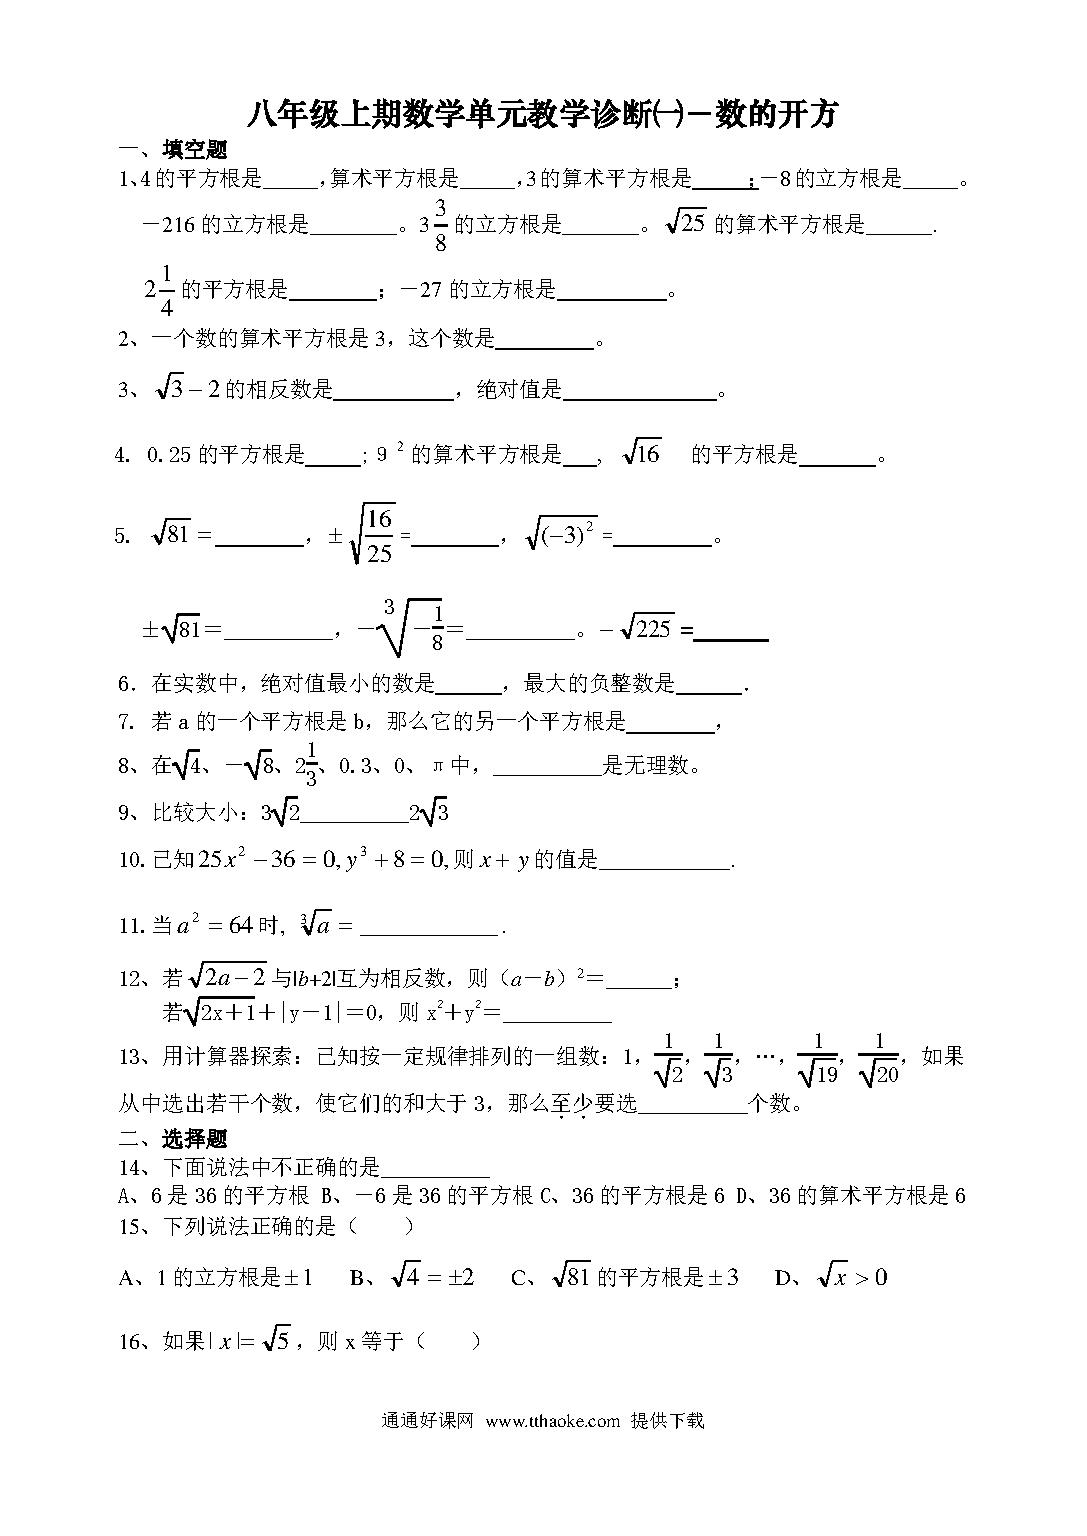 八年级上期数学单元教学诊断㈠－数的开方
一、填空题
1、4的平方根是_____，算术平方根是_____，3的算术平方根是_____；－8的立方根是_____。
－216的立方根是________。3 3/8 的立方根是_______。√25 的算术平方根是______.
2 1/4 的平方根是________；－27的立方根是__________。
2、一个数的算术平方根是3，这个数是_________。
3、√3－2的相反数是___________，绝对值是______________。
4. 0.25的平方根是_____；9² 的算术平方根是___, √16 的平方根是_______。
5. √81 =________，±√(16/25) =________，√((−3)²) =_________。
±√81＝__________，－∛(－1/8)＝__________。－√225 =_______
6．在实数中，绝对值最小的数是______，最大的负整数是______.
7. 若a的一个平方根是b，那么它的另一个平方根是________，
8、在√4、－√8、2 1/3、0.3、0、π中，__________是无理数。
9、比较大小：3√2__________2√3
10.已知25x²－36＝0, y³＋8＝0,则x＋y的值是____________.
11.当a²＝64时, ∛a＝_____________.
12、若√(2a－2)与|b+2|互为相反数，则（a－b）²＝______；
若√(2x＋1)＋|y－1|＝0，则x²＋y²＝__________
13、用计算器探索：已知按一定规律排列的一组数：1，1/√2，1/√3，…，1/√19，1/√20，如果
从中选出若干个数，使它们的和大于3，那么至少要选__________个数。
二、选择题
14、下面说法中不正确的是__________
A、6是36的平方根 B、－6是36的平方根 C、36的平方根是6 D、36的算术平方根是6
15、下列说法正确的是（　　）
A、1的立方根是±1 B、√4＝±2 C、√81的平方根是±3 D、√x＞0
16、如果|x|＝√5，则x等于（　　）
通通好课网 www.tthaoke.com 提供下载